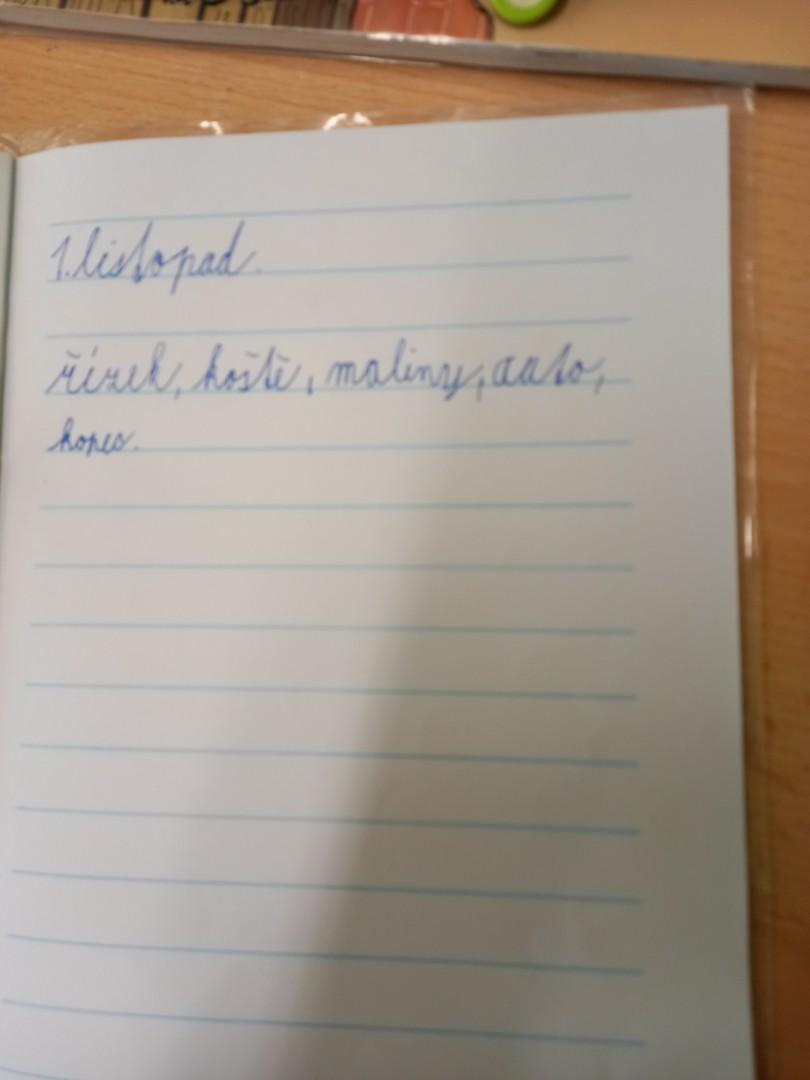 1. listopad.
řízek, koště, maliny, aato,
kopec.